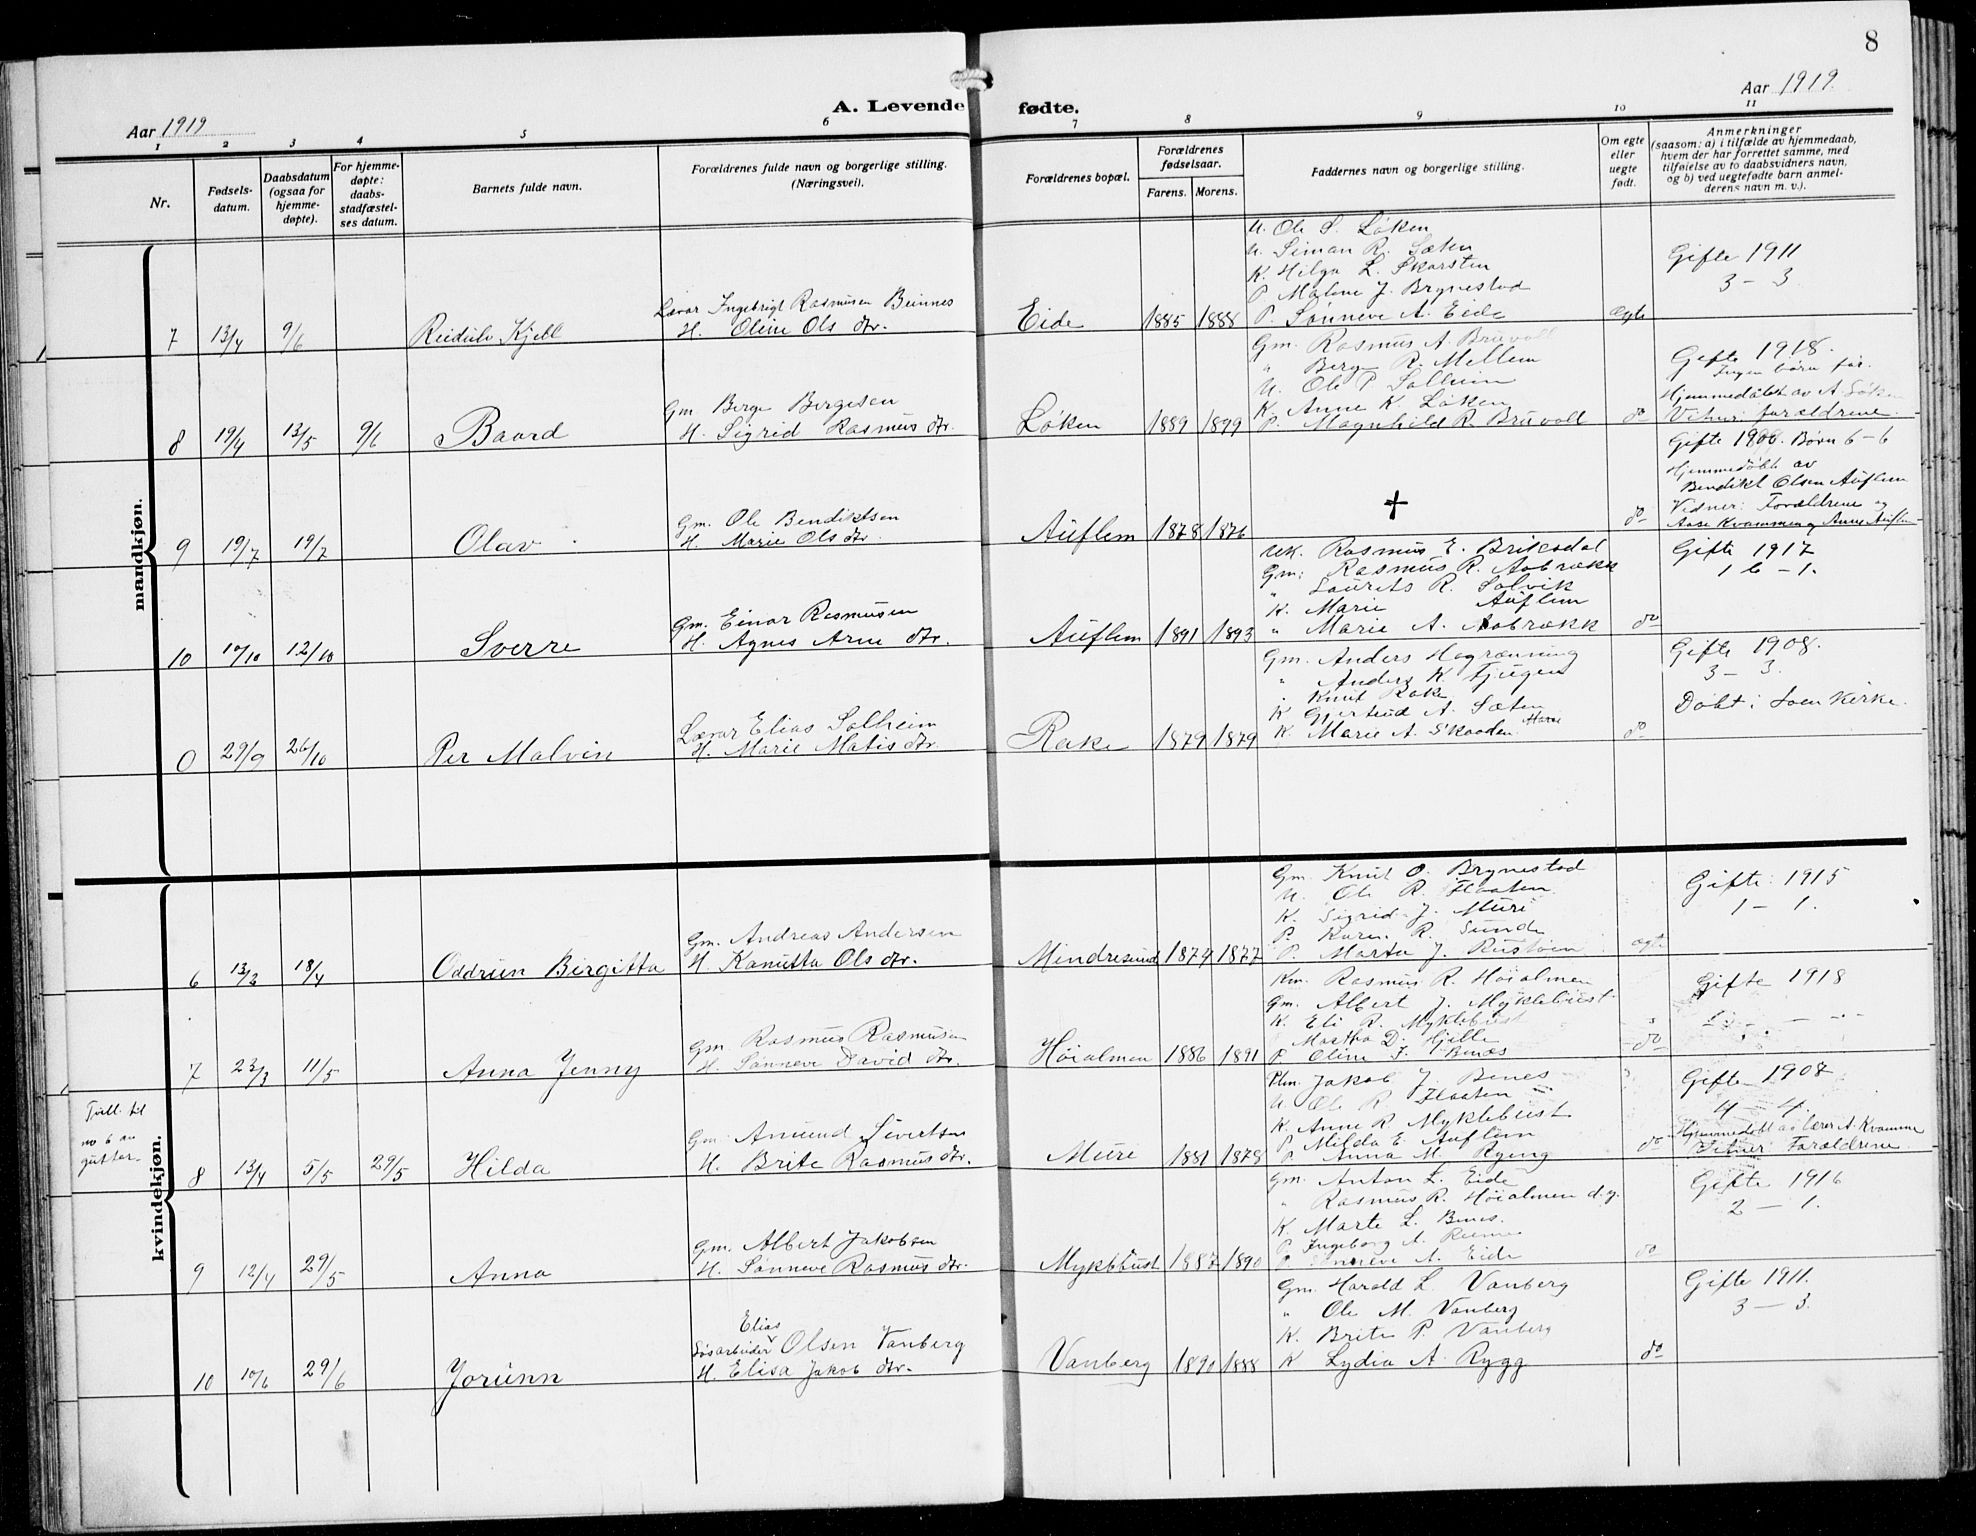 8
A. Levende fødte.
Aar 1919
Aar 1919.
1 2 3 4 5 6 7 8 9 10 11
Nr.
Fødsels-
datum.
Daabsdatum
(ogsaa for
hjemme-
døpte).
For hjemme-
døpte:
daabs-
stadfæstel-
ses datum.
Barnets fulde navn.
Forældrenes fulde navn og borgerlige stilling.
(Næringsvei).
Forældrenes bopæl.
Forældrenes
fødselsaar.
Farens. Morens.
Faddernes navn og borgerlige stilling.
Om egte
eller
uegte
født.
Anmerkninger
(saasom: a) i tilfælde av hjemmedaab,
hvem der har forrettet samme, med
tilføielse av to daabsvidners navn,
og b) ved uegtefødte barn anmel-
derens navn m. v.).
mandkjøn.
7 13/4 9/6 Reidulv Kjell
Lærar Ingebrigt Rasmusen Beinnes
H. Oline Ols dtr.
Eide 1885 1888
U. Ole S. Løken
U. Simon R. Sæten
K. Helga L. Skarsten
P. Malene J. Brynestad
P. Sønneve A. Eide
egte
Gifte 1911
3 - 3
8 19/4 13/5 9/6 Baard
Gm. Berge Bergesen
H. Sigrid Rasmus dtr.
Løken 1889 1899
Gm. Rasmus A. Bruvoll
" Berge R. Mellem
U. Ole P. Solheim
K. Anne K. Løken
P. Magnhild R. Bruvoll
do
Gifte 1918.
Ingen børn før.
Hjemmedøbt av A. Løken
Vitner: forældrene.
9 19/7 19/7 Olav
Gm. Ole Bendiktsen
H. Marie Ols dtr.
Auflem 1878 1876
✝
do
Gifte 1900. Børn 6-6
Hjemmedøbt av
Bendikt Olsen Auflem
Vidner: Forældrene og
Aase Kvamme og Anne Auflem
10 10/10 12/10 Sverre
Gm. Einar Rasmusen
H. Agnes Arne dtr.
Auflem 1891 1893
Uk. Rasmus E. Briksdal
Gm. Rasmus R. Aabrekk
" Laurits R. Solvik
K. Marie Auflem
" Marie A. Aabrækk
do
Gifte 1917
1 - 1.
0 29/9 26/10 Per Malvin
Lærar Elias Solheim
H. Marie Matis dtr.
Rake 1879 1879
Gm. Anders Hogrenning
" Anders K. Tjugen
" Knut Rake
K Gjertrud A. Sæten
K. Marie A. Skaaden
do
Gifte 1908.
3 - 3.
Døbt i Loen Kirke.
kvindekjøn.
6 13/3 18/4 Oddrun Birgitta
Gm. Andreas Andersen
H Kanutta Ols dtr.
Mindresund 1879 1877
Gm. Knut O. Brynestad
U. Ole R. Flaaten
K. Sigrid J. Muri
P. Karen R. Sunde
P. Marta J. Rustøen
egte
Gifte 1915
1 - 1.
7 23/3 11/5 Anna Jenny
Gm. Rasmus Rasmusen
H. Sønneve David dtr.
Høialmen 1886 1891
Km. Rasmus R. Høialmen
Gm. Albert J. Myklebust
K. Eli R. Myklebust
Martha D. Hjelle
P Oline J. Benes
do
Gifte 1918
Tvill. til
no 6 av
gutter.
8 13/4 5/5 29/5 Hilda
Gm. Amund Sivertsen
H. Brite Rasmus dtr.
Mure 1881 1878
Plm. Jakob J. Benes
U. Ole R. Flaaten
K. Anne R. Myklebust
P Milda E. Auflem
P Anna M. Ryeng
do
Gifte 1908
4 4.
Hjemmedøbt av Lærer A. Kvamme
Vitner Forældrene
9 12/4 29/5 Anna
Gm. Albert Jakobsen
H. Sønneve Rasmus dtr.
Myklebust 1887 1890
Gm. Anton L. Eide
" Rasmus R. Høialmen d.y.
K Marte L. Benes.
P Ingeborg A.
P. Sønneve A. Eide
do
Gifte 1916
2 - 1.
10 10/6 29/6 Jorunn
Elias
Løsarbeider Olsen Vanberg
H. Elisa Jakob dtr.
Vanberg 1890 1888
Gm. Harald L. Vanberg
" Ole M. Vanberg
K. Brite P. Vanberg
K Lydia A. Rygg
do
Gifte 1911.
3 - 3.